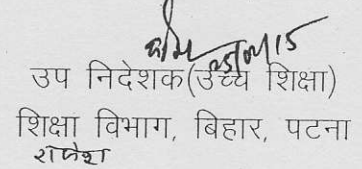 उप निदेशक(उच्च शिक्षा)
शिक्षा विभाग, बिहार, पटना
राजेश